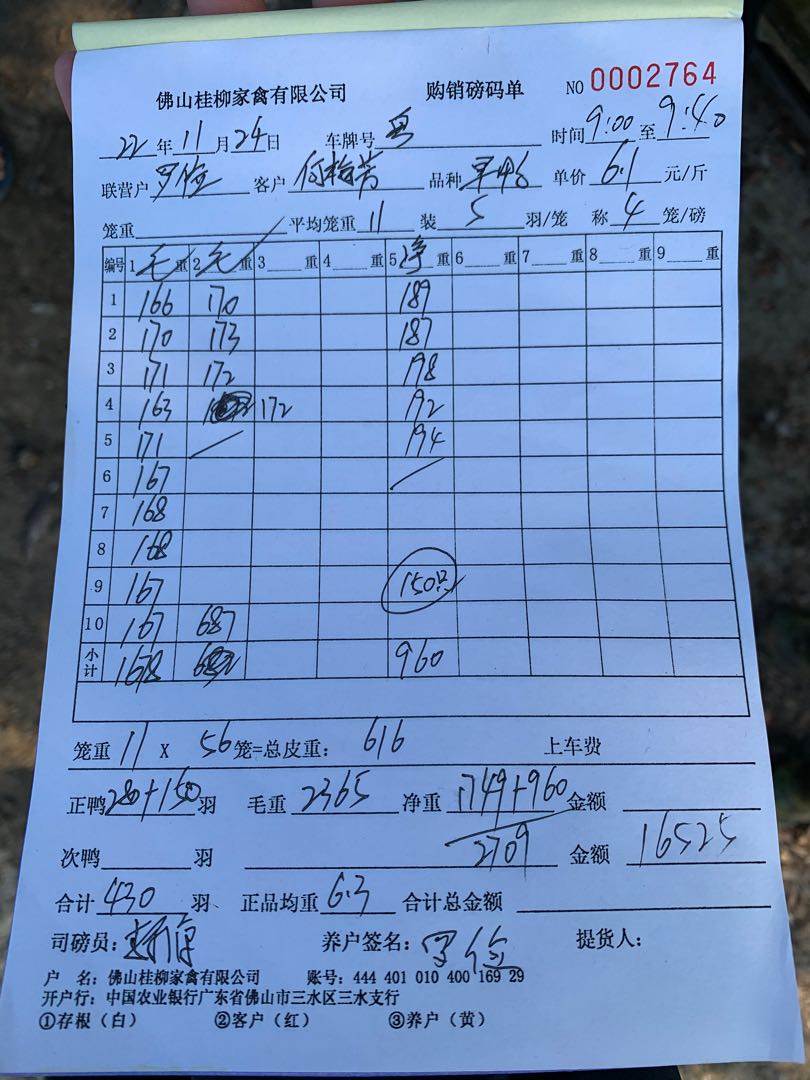 佛山桂柳家禽有限公司 购销磅码单 NO 0002764
22年11月24日 车牌号 粤 时间9:00至9:40
联营户 客户 何梅芳 品种 单价6.1元/斤
笼重 平均笼重11 装5羽/笼 称4笼/磅
编号 1毛重 2毛重 3重 4重 5净重 6重 7重 8重 9重
1 166 170 189
2 170 173 187
3 171 172 198
4 163 172 192
5 171 194
6 167
7 168
8 168
9 167 150只
10 167 687
小计 1678 960
笼重11X56笼=总皮重：616 上车费
正鸭280+150羽 毛重2365 净重1749+960金额
次鸭羽 2709 金额16525
合计430羽 正品均重6.3 合计总金额
司磅员： 养户签名： 提货人：
户 名：佛山桂柳家禽有限公司 账号：444 401 010 400 169 29
开户行：中国农业银行广东省佛山市三水区三水支行
①存根（白） ②客户（红） ③养户（黄）